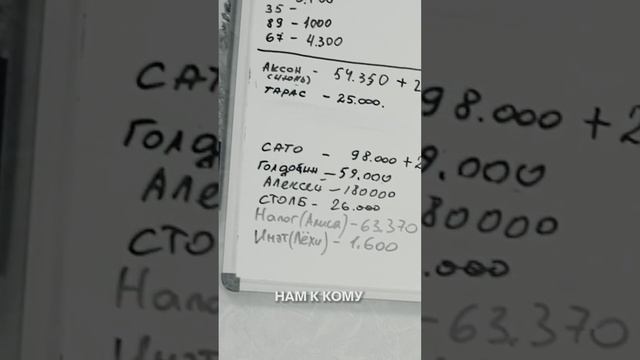 35 -
89 - 1000
67 - 4.300
АКСОН - 54.350 + 2
(июнь)
ТАРАС - 25.000.
САТО - 98.000 + 2
Голдобин - 59.000
Алексей - 180000
СТОЛБ - 26.000
Налог (Алиса) - 63.370
Инэт (Лёхи) - 1.600
НАМ К КОМУ